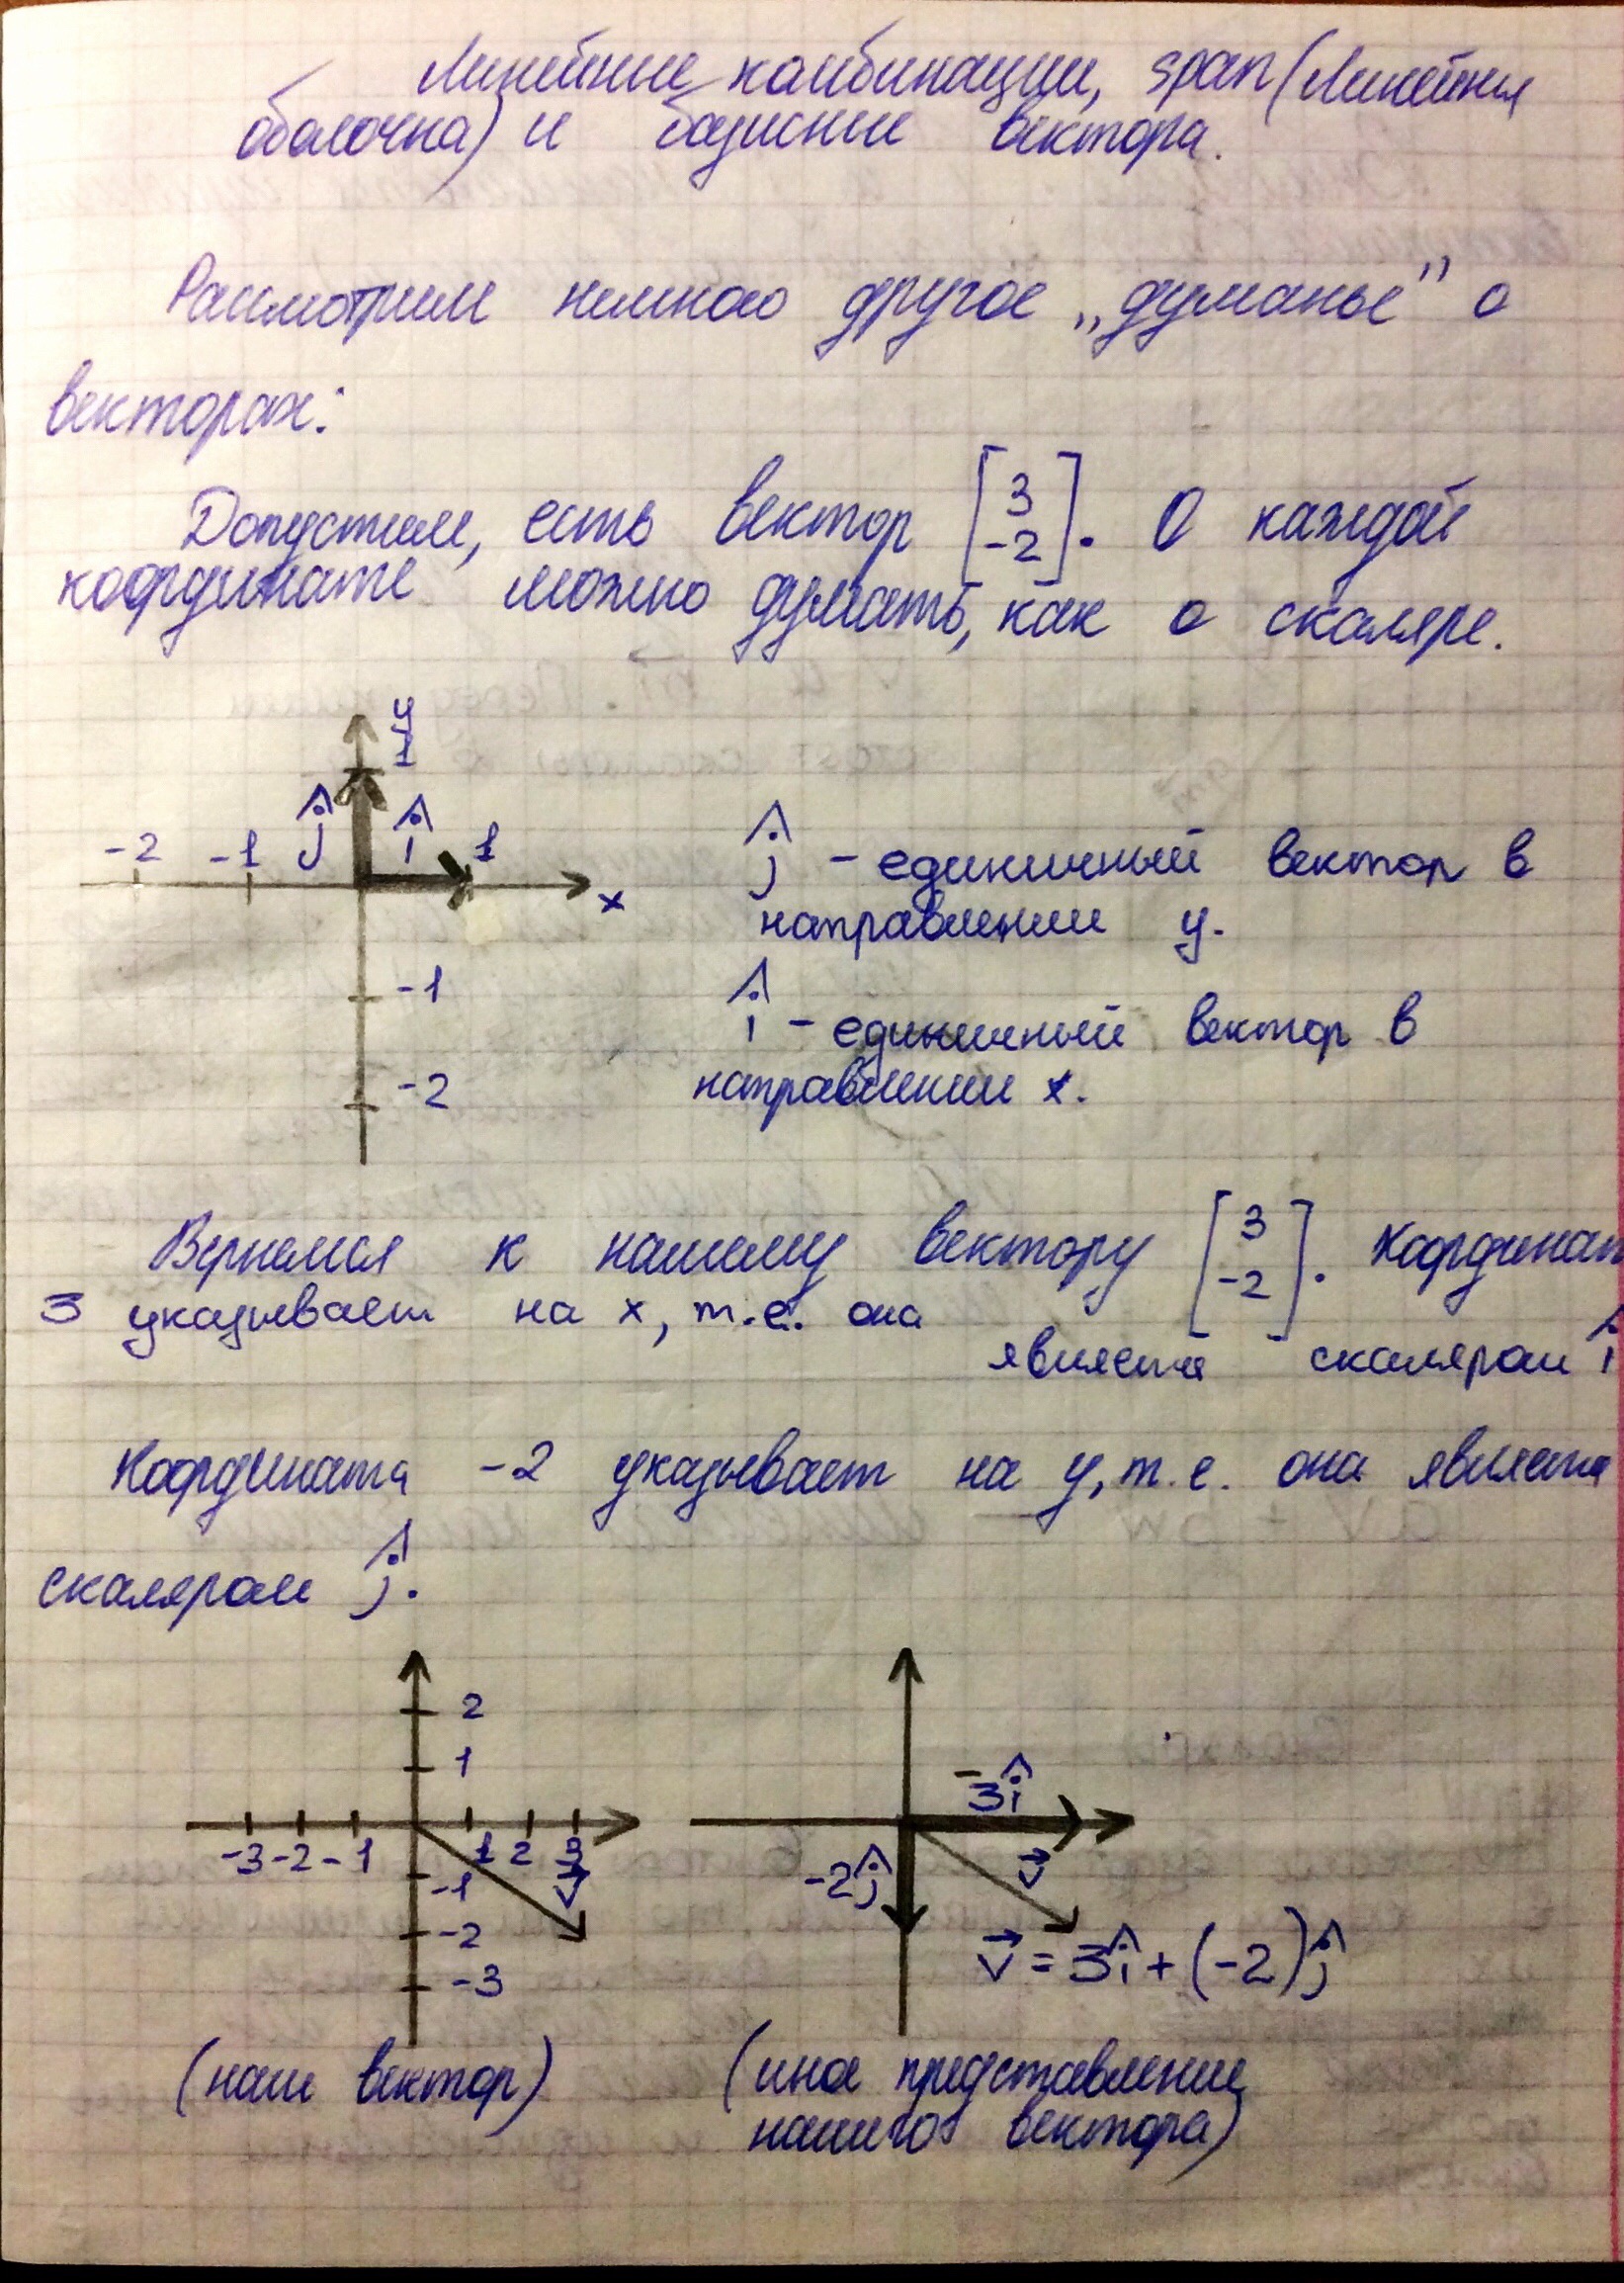 Линейные комбинации, span (Линейная
оболочка) и базисные вектора.
Рассмотрим немного другое „думанье" о
векторах:
Допустим, есть вектор [3 -2]. О каждой
координате можно думать, как о скаляре.
y
1
ĵ î
-2 -1 1
x
-1
-2
ĵ - единичный вектор в
направлении y.
î - единичный вектор в
направлении x.
Вернемся к нашему вектору [3 -2]. Координат
3 указывает на x, т.е. она
является скаляром î
Координата -2 указывает на y, т.е. она является
скаляром ĵ.
2
1
-3 -2 -1 1 2 3
v⃗
-1
-2
-3
(наш вектор)
3î
-2ĵ
v⃗
v⃗ = 3î + (-2)ĵ
(иное представление
нашего вектора)